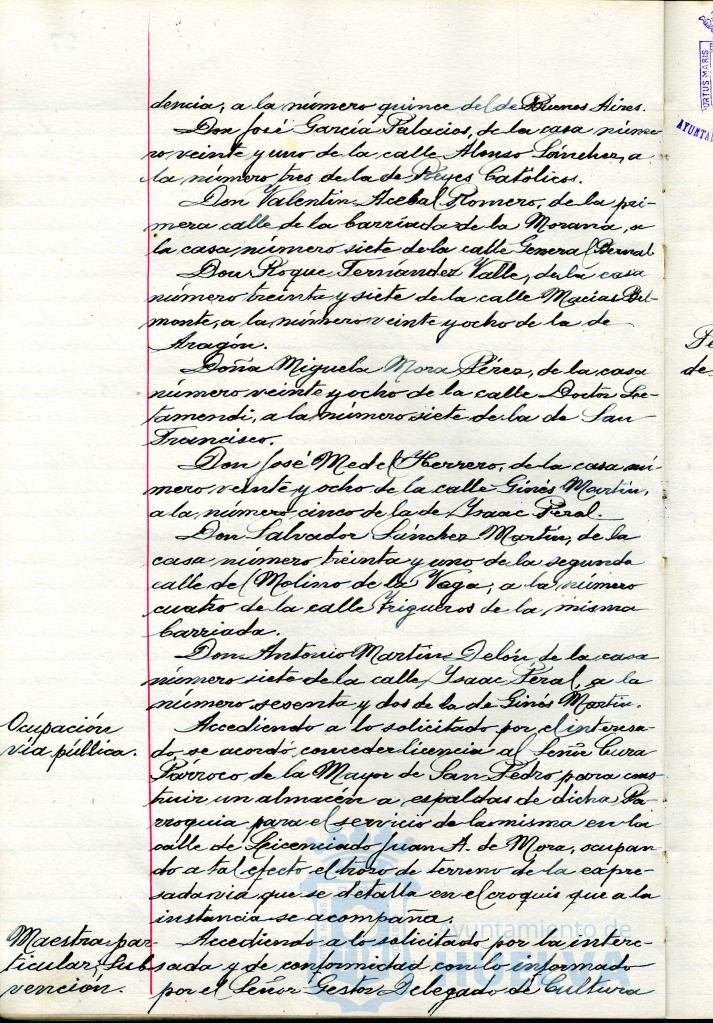 dencia, a la número quince del de Buenos Aires.
Don José García Palacios, de la casa núme-
ro veinte y uno de la calle Alonso Sánchez, a
la número tres de la de Reyes Católicos.
Don Valentin Acebal Romero, de la pri-
mera calle de la barriada de la Morana, a
la casa número siete de la calle General Bernal
Don Roque Fernandez Valle, de la casa
número treinta y siete de la calle Macías Bel-
monte, a la número veinte y ocho de la de
Aragón.
Doña Miguela Mora Pérez, de la casa
número veinte y ocho de la calle Doctor Le-
tamendi, a la número siete de la de San
Francisco.
Don José Medel Herrero, de la casa nú-
mero veinte y ocho de la calle Ginés Martín,
a la número cinco de la de Isaac Peral.
Don Salvador Sánchez Martín, de la
casa número treinta y uno de la segunda
calle del Molino de la Vega, a la número
cuatro de la calle Trigueros de la misma
barriada.
Don Antonio Martín Delón, de la casa
número siete de la calle Isaac Peral, a la
número sesenta y dos de la de Ginés Martín.
Ocupación
via pública.
Accediendo a lo solicitado por el interesa-
do, se acordó conceder licencia al Señor Cura
Párroco de la Mayor de San Pedro, para cons-
truir un almacén a espaldas de dicha Pa-
rroquia para el servicio de la misma en la
calle de Licenciado Juan A. de Mora, ocupan-
do a tal efecto el trozo de terreno de la expre-
sada via que se detalla en el croquis que a la
instancia se acompaña.
Maestra par-
ticular, Sub-
vención.
Accediendo a lo solicitado por la intere-
sada y de conformidad con lo informado
por el Señor Gestor Delegado de Cultura
Ayuntamiento de
HUELVA
PORTUS MARIS
AYUNTA
de